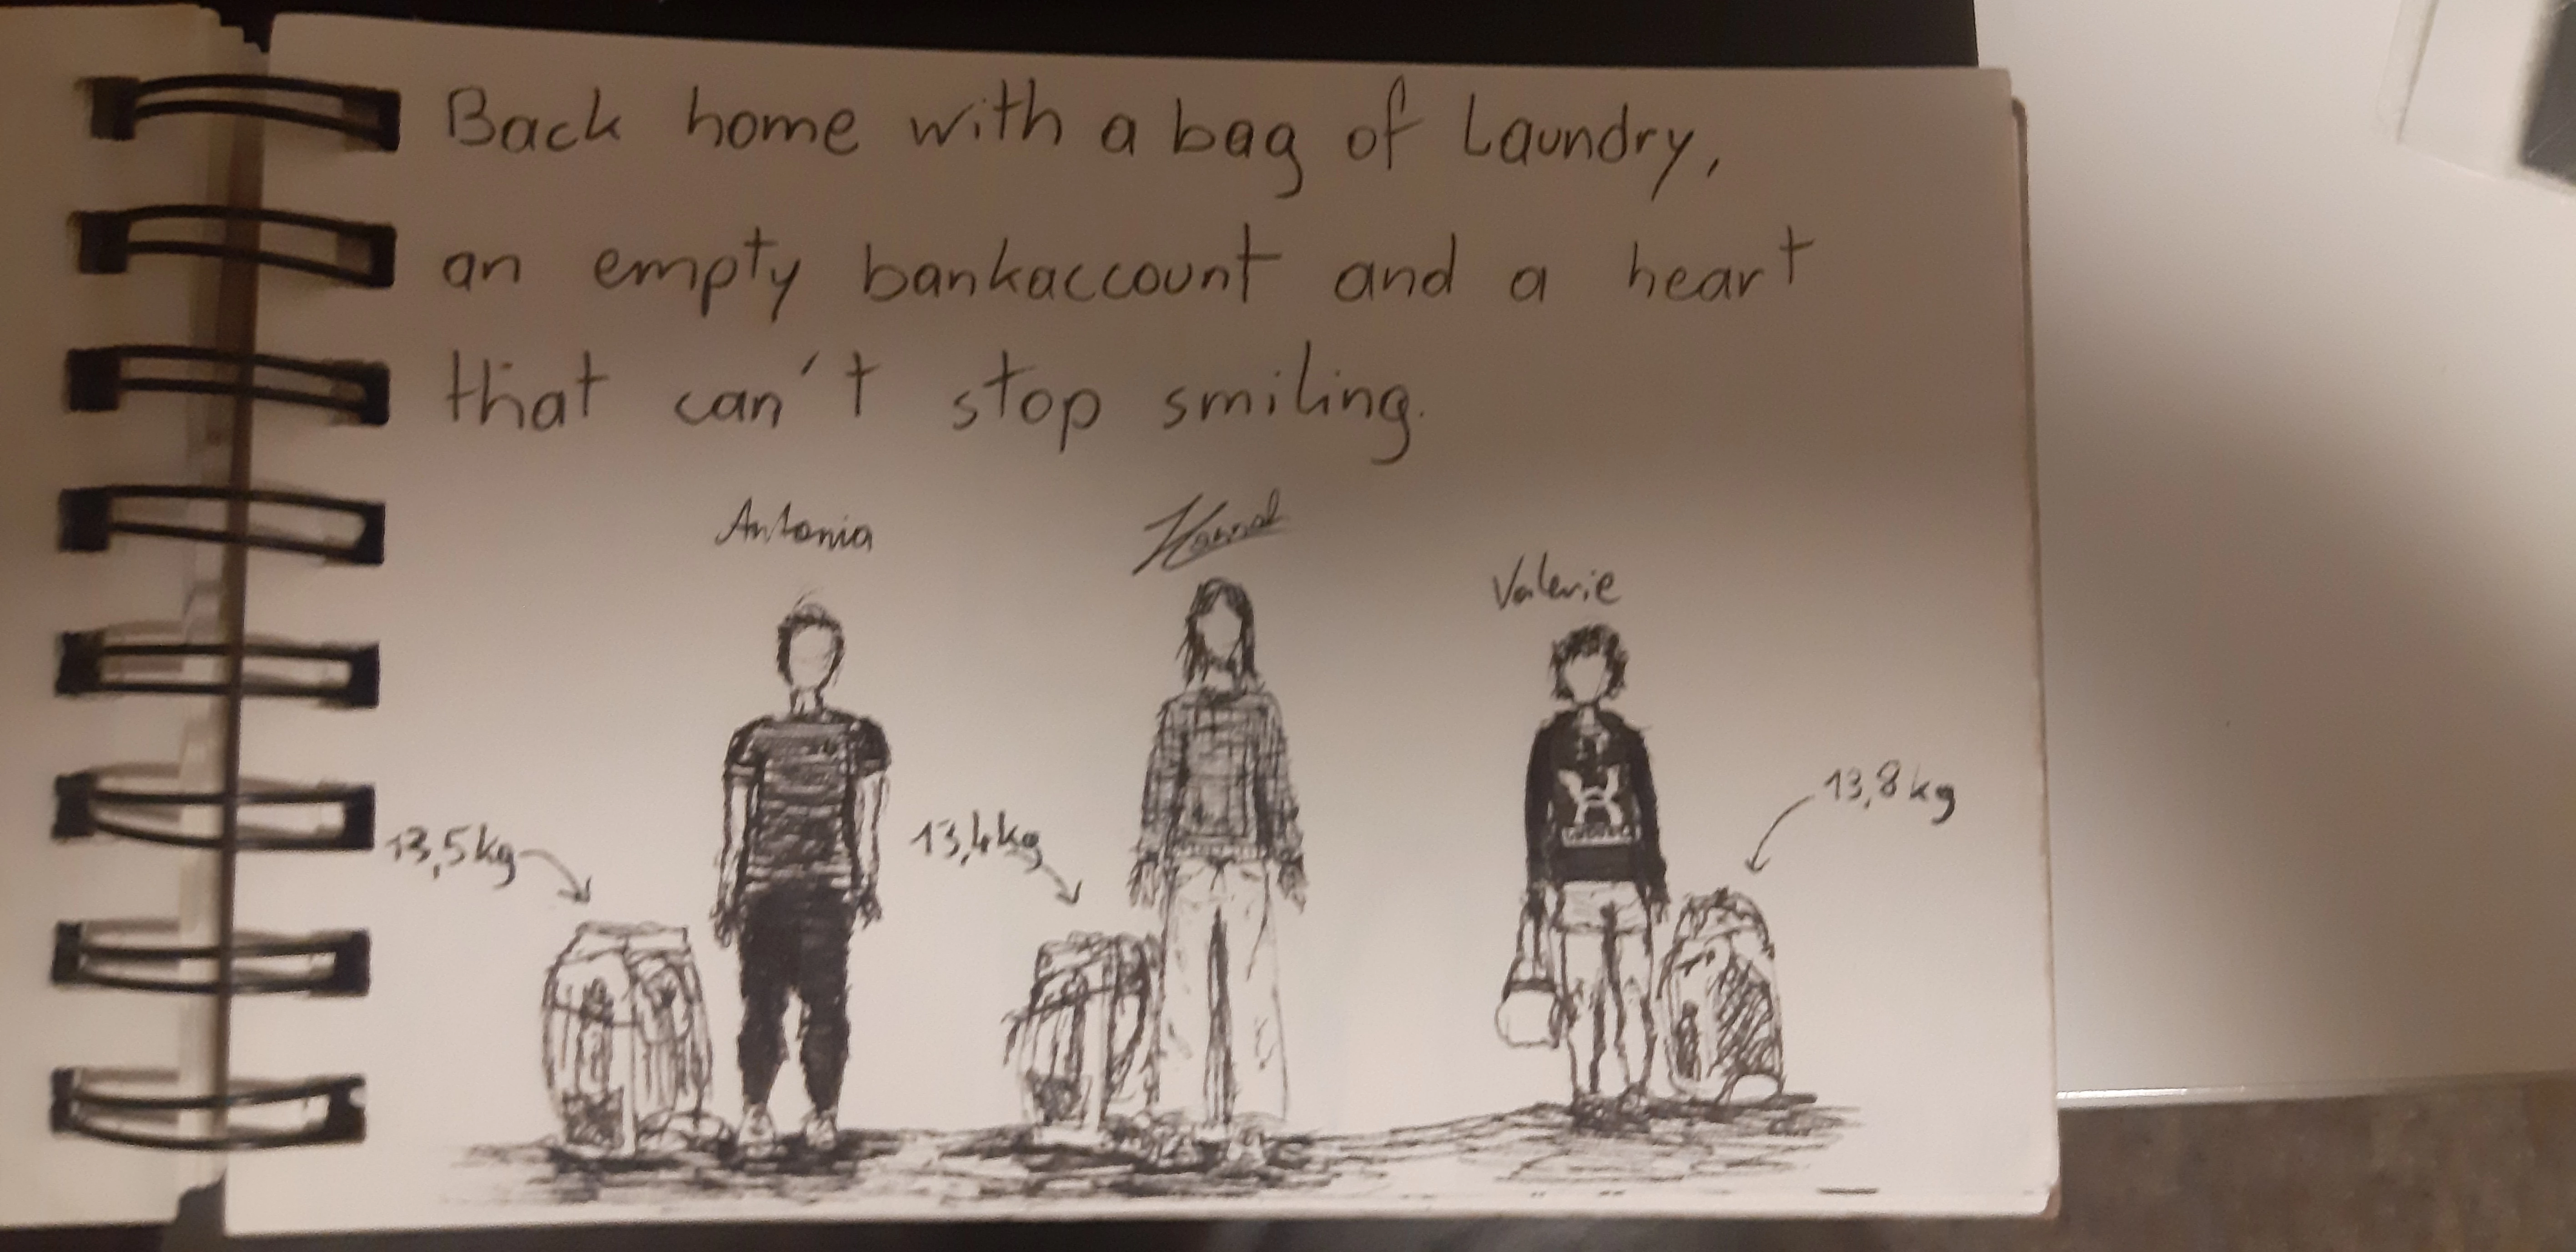 Back home with a bag of Laundry,
an empty bankaccount and a heart
that can't stop smiling.
Antonia
Valerie
13,5kg
13,4kg
13,8kg